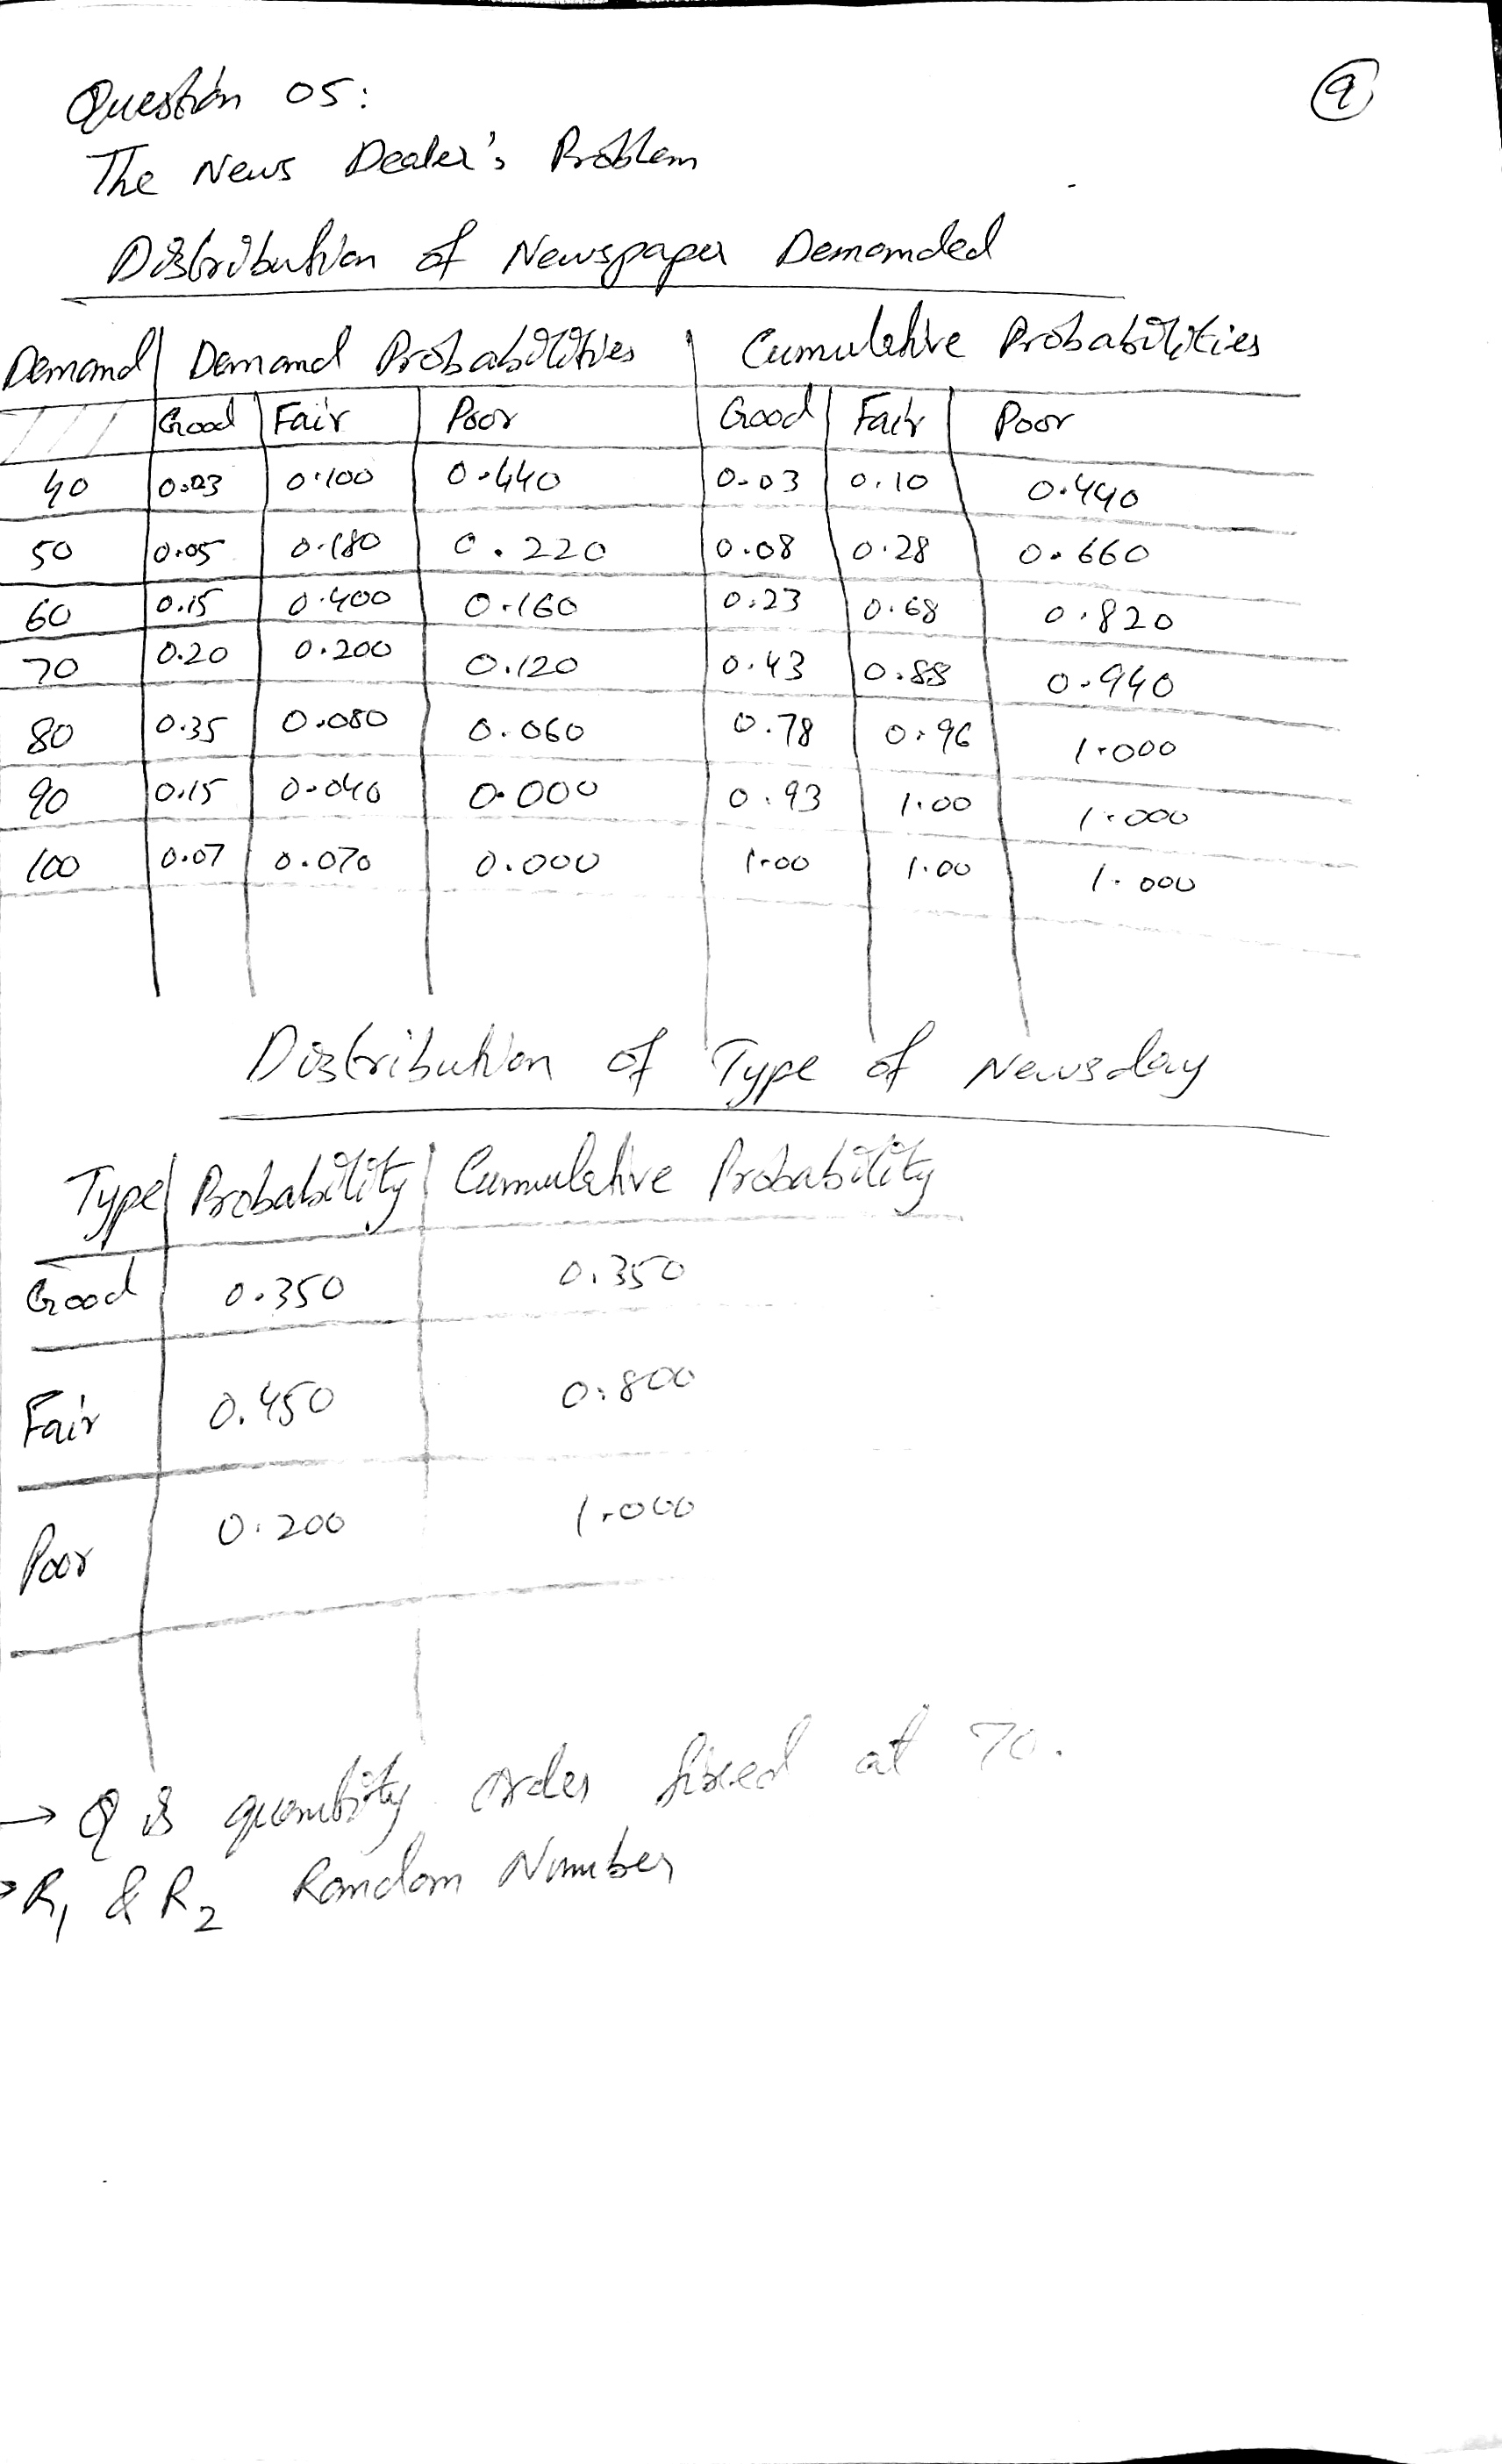 Question 05:
9
The News Dealer's Problem
Distribution of Newspaper Demanded
Demand Demand Probabilities Cumulative Probabilities
Good Fair Poor Good Fair Poor
40 0.03 0.100 0.440 0.03 0.10 0.440
50 0.05 0.180 0.220 0.08 0.28 0.660
60 0.15 0.400 0.160 0.23 0.68 0.820
70 0.20 0.200 0.120 0.43 0.88 0.940
80 0.35 0.080 0.060 0.78 0.96 1.000
90 0.15 0.040 0.000 0.93 1.00 1.000
100 0.07 0.070 0.000 1.00 1.00 1.000
Distribution of Type of Newsday
Type Probability Cumulative Probability
Good 0.350 0.350
Fair 0.450 0.800
Poor 0.200 1.000
→ Q is quantity order fixed at 70.
→ R1 & R2 Random Number